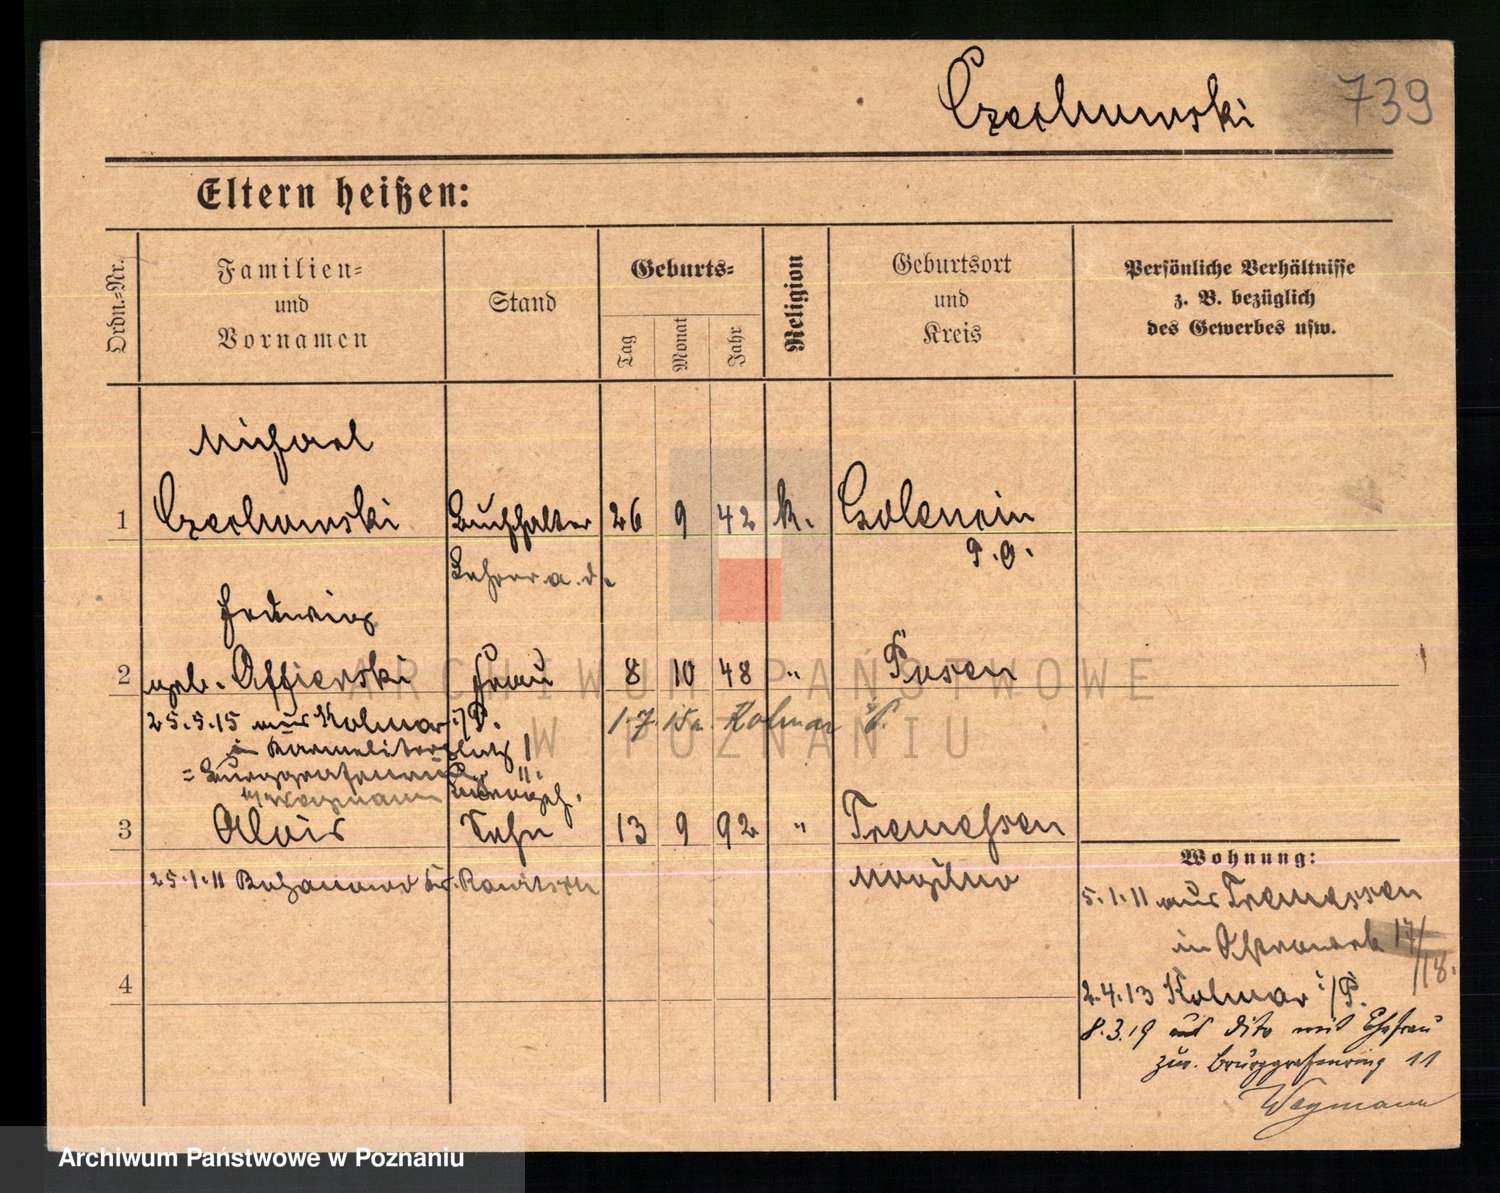 Czechowski 739
Eltern heißen:
Ordn.-Nr.
Familien-
und
Vornamen
Stand
Geburts-
Tag
Monat
Jahr
Religion
Geburtsort
und
Kreis
Persönliche Verhältnisse
z. B. bezüglich
des Gewerbes usw.
Michael
1 Czechowski Buchhalter 26 9 42 k.
P. O.
Lehrer a. D.
Hedwig
2 geb. Frau 8 10 48 " Posen
25.5.15 aus Kolmar i/P. 1.7. Kolmar
in Karmeliterplatz 1
= Burggrafenring
Wegmann
3 Alois Sohn 13 9 92 " Tremessen
25.1.11 Rawitsch Mogilno
4
Wohnung:
5.1.11 aus Tremessen
in 17/18.
2.4.13 Kolmar i/P.
8.3.19 aus dito mit Ehefrau
zur. Burggrafenring 11
Wegmann
ARCHIWUM PAŃSTWOWE
W POZNANIU
Archiwum Państwowe w Poznaniu